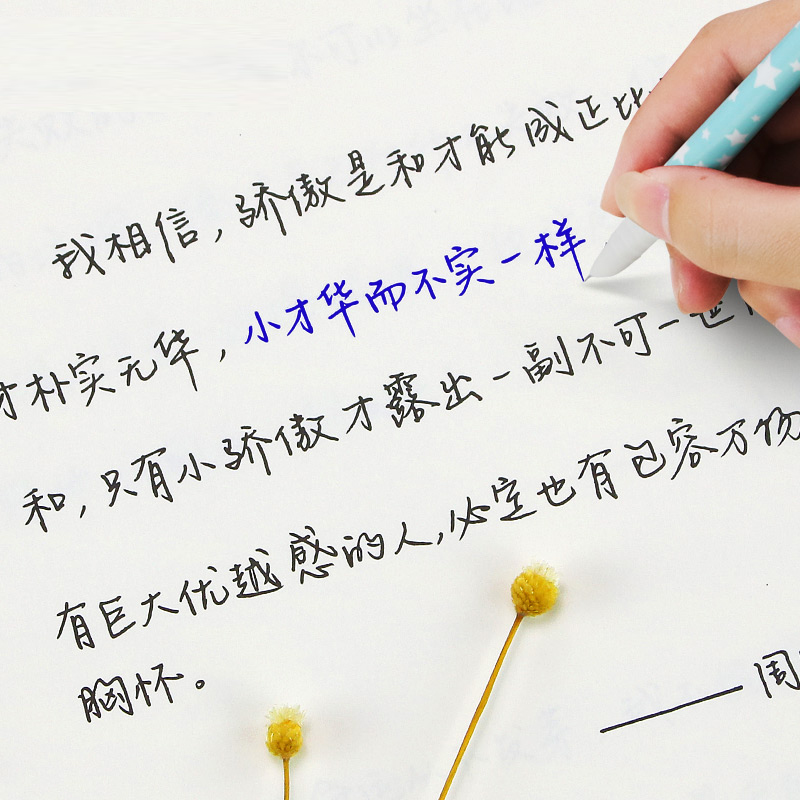 我相信，骄傲是和才能成正比
才朴实无华，小才华而不实一样
和，只有小骄傲才露出一副不可一世
有巨大优越感的人，必定也有包容万物
胸怀。
——周